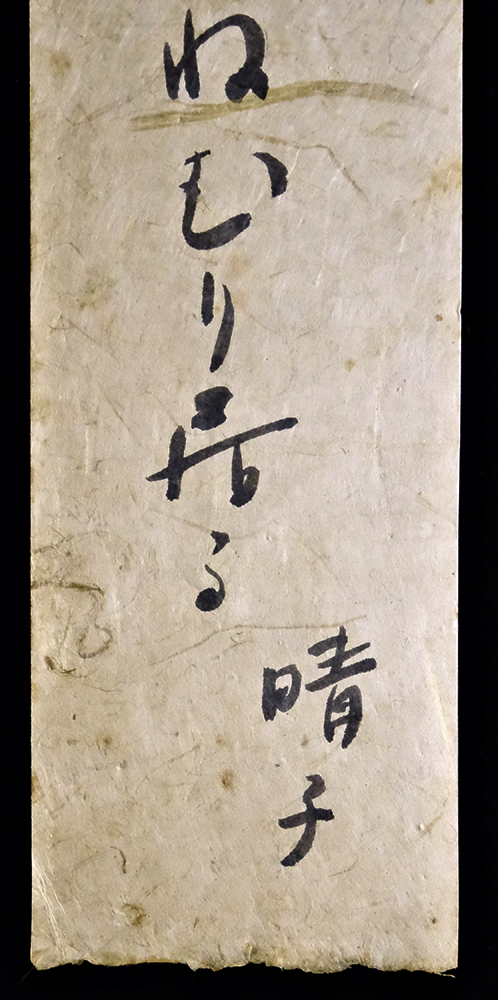 ねむり居る
晴子